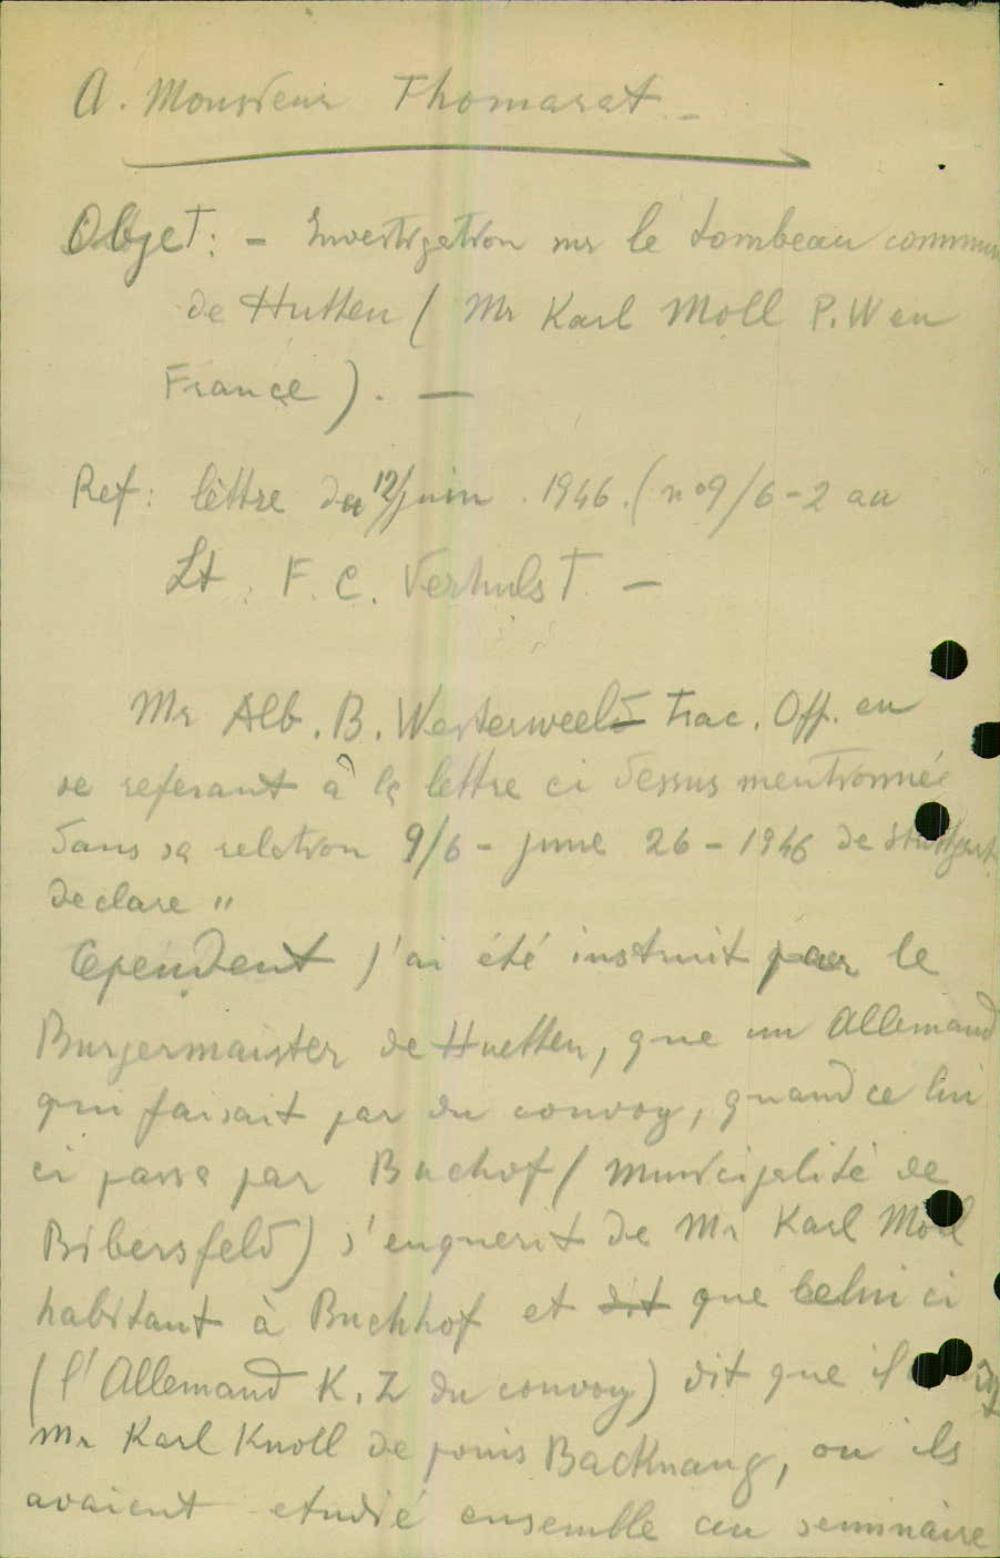 A. Monsieur Thomasat. -
Objet: - Investigation sur le tombeau commun
de Hutten ( Mr Karl Moll P.W en
France ). —
Ref: lèttre du 12/juin. 1946. (n°9/6-2 au
Lt. F. C. Verhulst —
Mr Alb. B. Westerweeld Trac. Off. en
se referant à la lettre ci dessus mentionnée
dans sa relation 9/6 - june 26 - 1946 de Stuttgart
declare "
Cependent j'ai été instruit par le
Burgermaister de Huetten, que un Allemand
qui faisait par du convoy, quand ce lui
ci passa par Buchof ( municipalité de
Bibersfeld) s'enquerit de Mr Karl Moll
habitant à Buchhof et dit que celui ci
(l'Allemand K.Z du convoy) dit que il
Mr Karl Knoll de pouis Backnang, ou ils
avaient etudié ensemble au seminaire